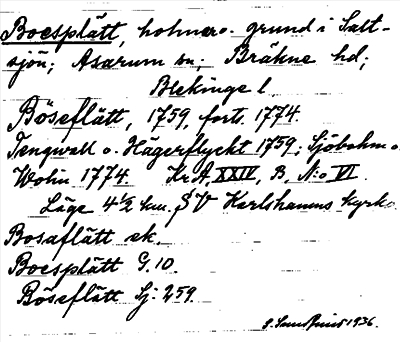 Boesplätt, holmar o. grund i Salt-
sjön; Asarum sn; Bräkne hd;
Blekinge l.
Böseflätt, 1759, forts. 1774.
Tengwall o. Hägerflyckt 1759; Sjöbohm o.
Wohn 1774. Kr.A, XXIV, B, N:o VI.
Läge 4½ km. SV Karlshamns kyrka.
Bosaflätt ek.
Boesplätt G. 10.
Böseflätt Sj: 259.
1936.